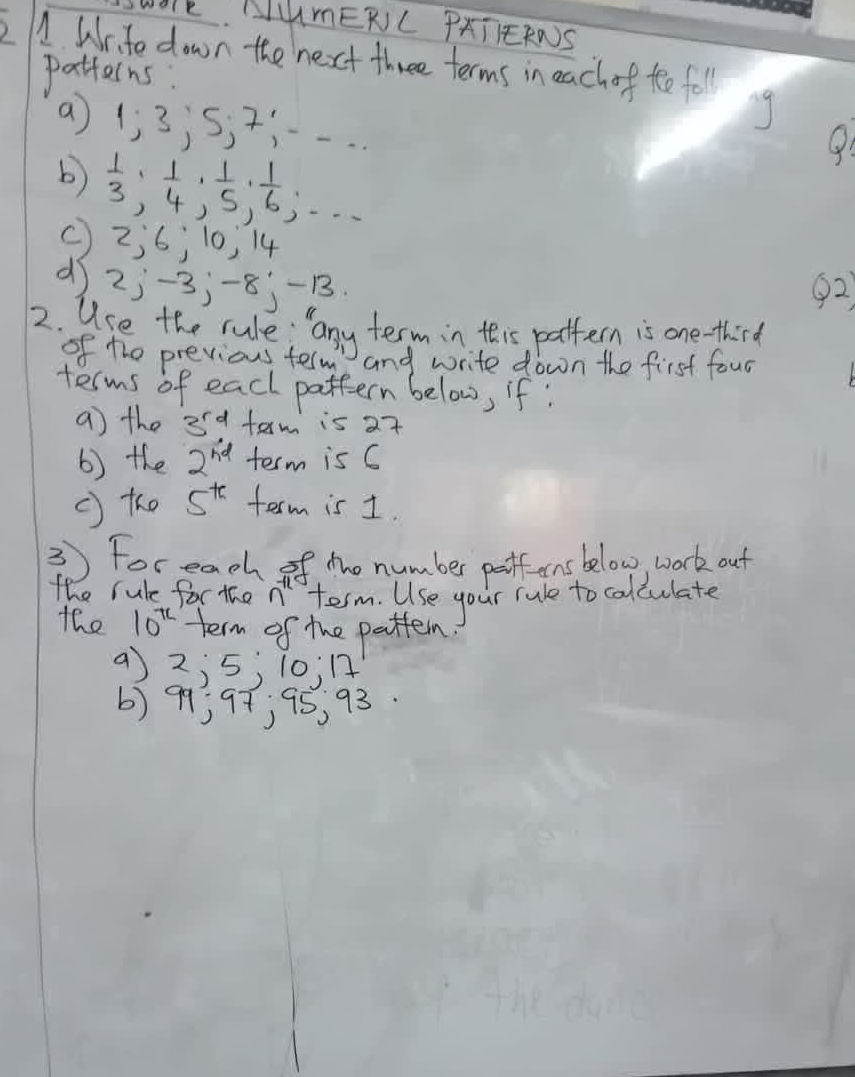 NUMERIC PATTERNS
2 1. Write down the next three terms in each of the foll g
patterns:
a) 1; 3; 5; 7; - - ..
b) 1/3; 1/4; 1/5; 1/6; - - - -
c) 2; 6; 10; 14
d) 2; -3; -8; -13.
2. Use the rule: "any term in this pattern is one-third
of the previous term" and write down the first four
terms of each pattern below, if:
a) the 3rd term is 27
b) the 2nd term is 6
c) the 5th term is 1.
3) For each of the number patterns below, work out
the rule for the nth term. Use your rule to calculate
the 10th term of the pattern.
a) 2; 5; 10; 17
b) 99; 97; 95; 93.
Q2)
the